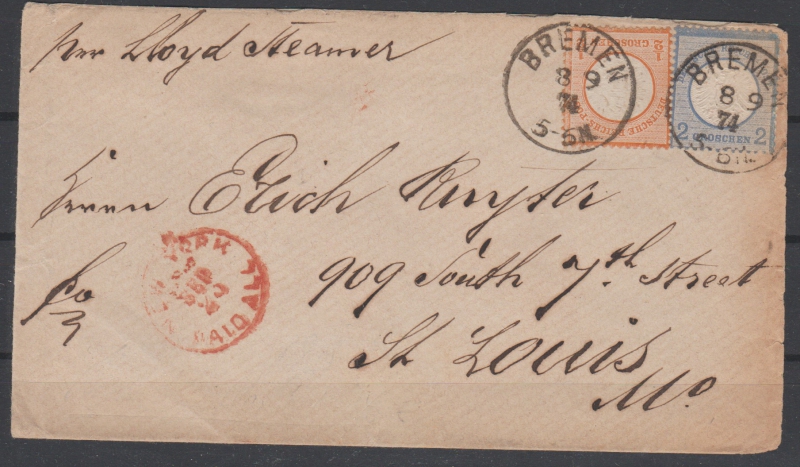 per Lloyd Steamer
BREMEN
8 9
74
5-6N
½ GROSCHEN ½
DEUTSCHE REICHS-POST
BREMEN
8 9
74
2 GROSCHEN 2
Herrn Erich
909 South 7th. Street
St Louis
Mo
NEW YORK
SEP
PAID ALL